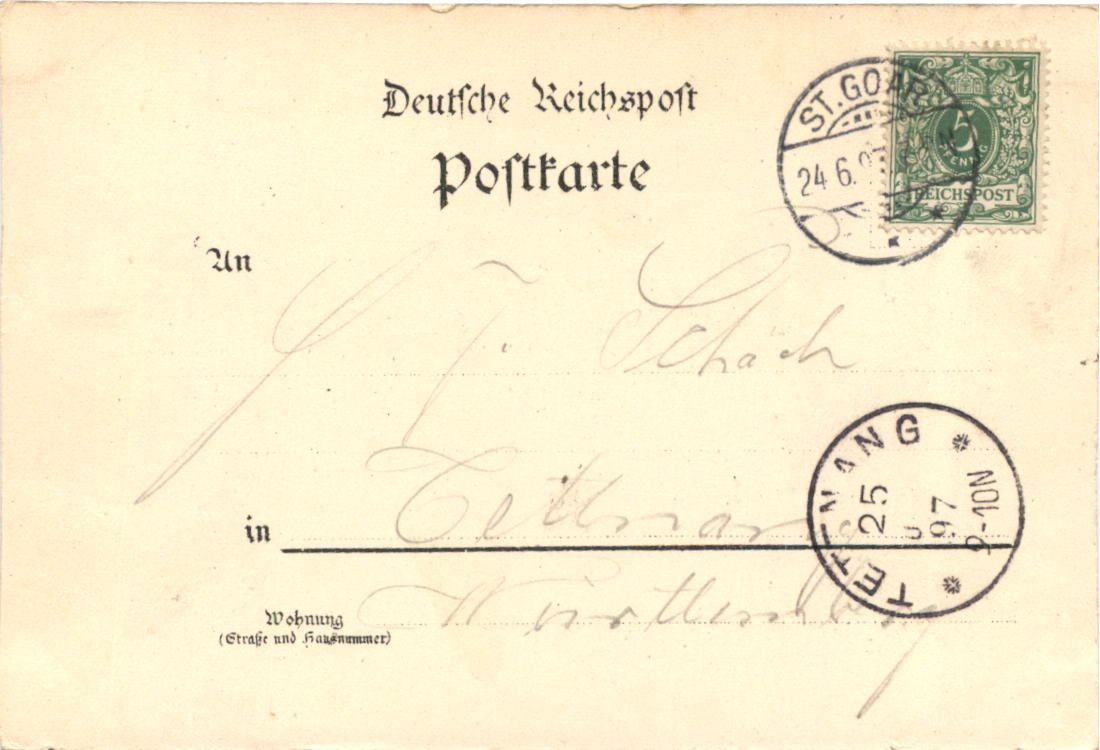 Deutsche Reichspost
Postkarte
ST. GOAR
24 6. 97
5
PFENNIG
REICHSPOST
An
J. Schäch
TETTNANG
25
6
97
9-10N
in Tettnang
Württemberg
Wohnung
(Straße und Hausnummer)